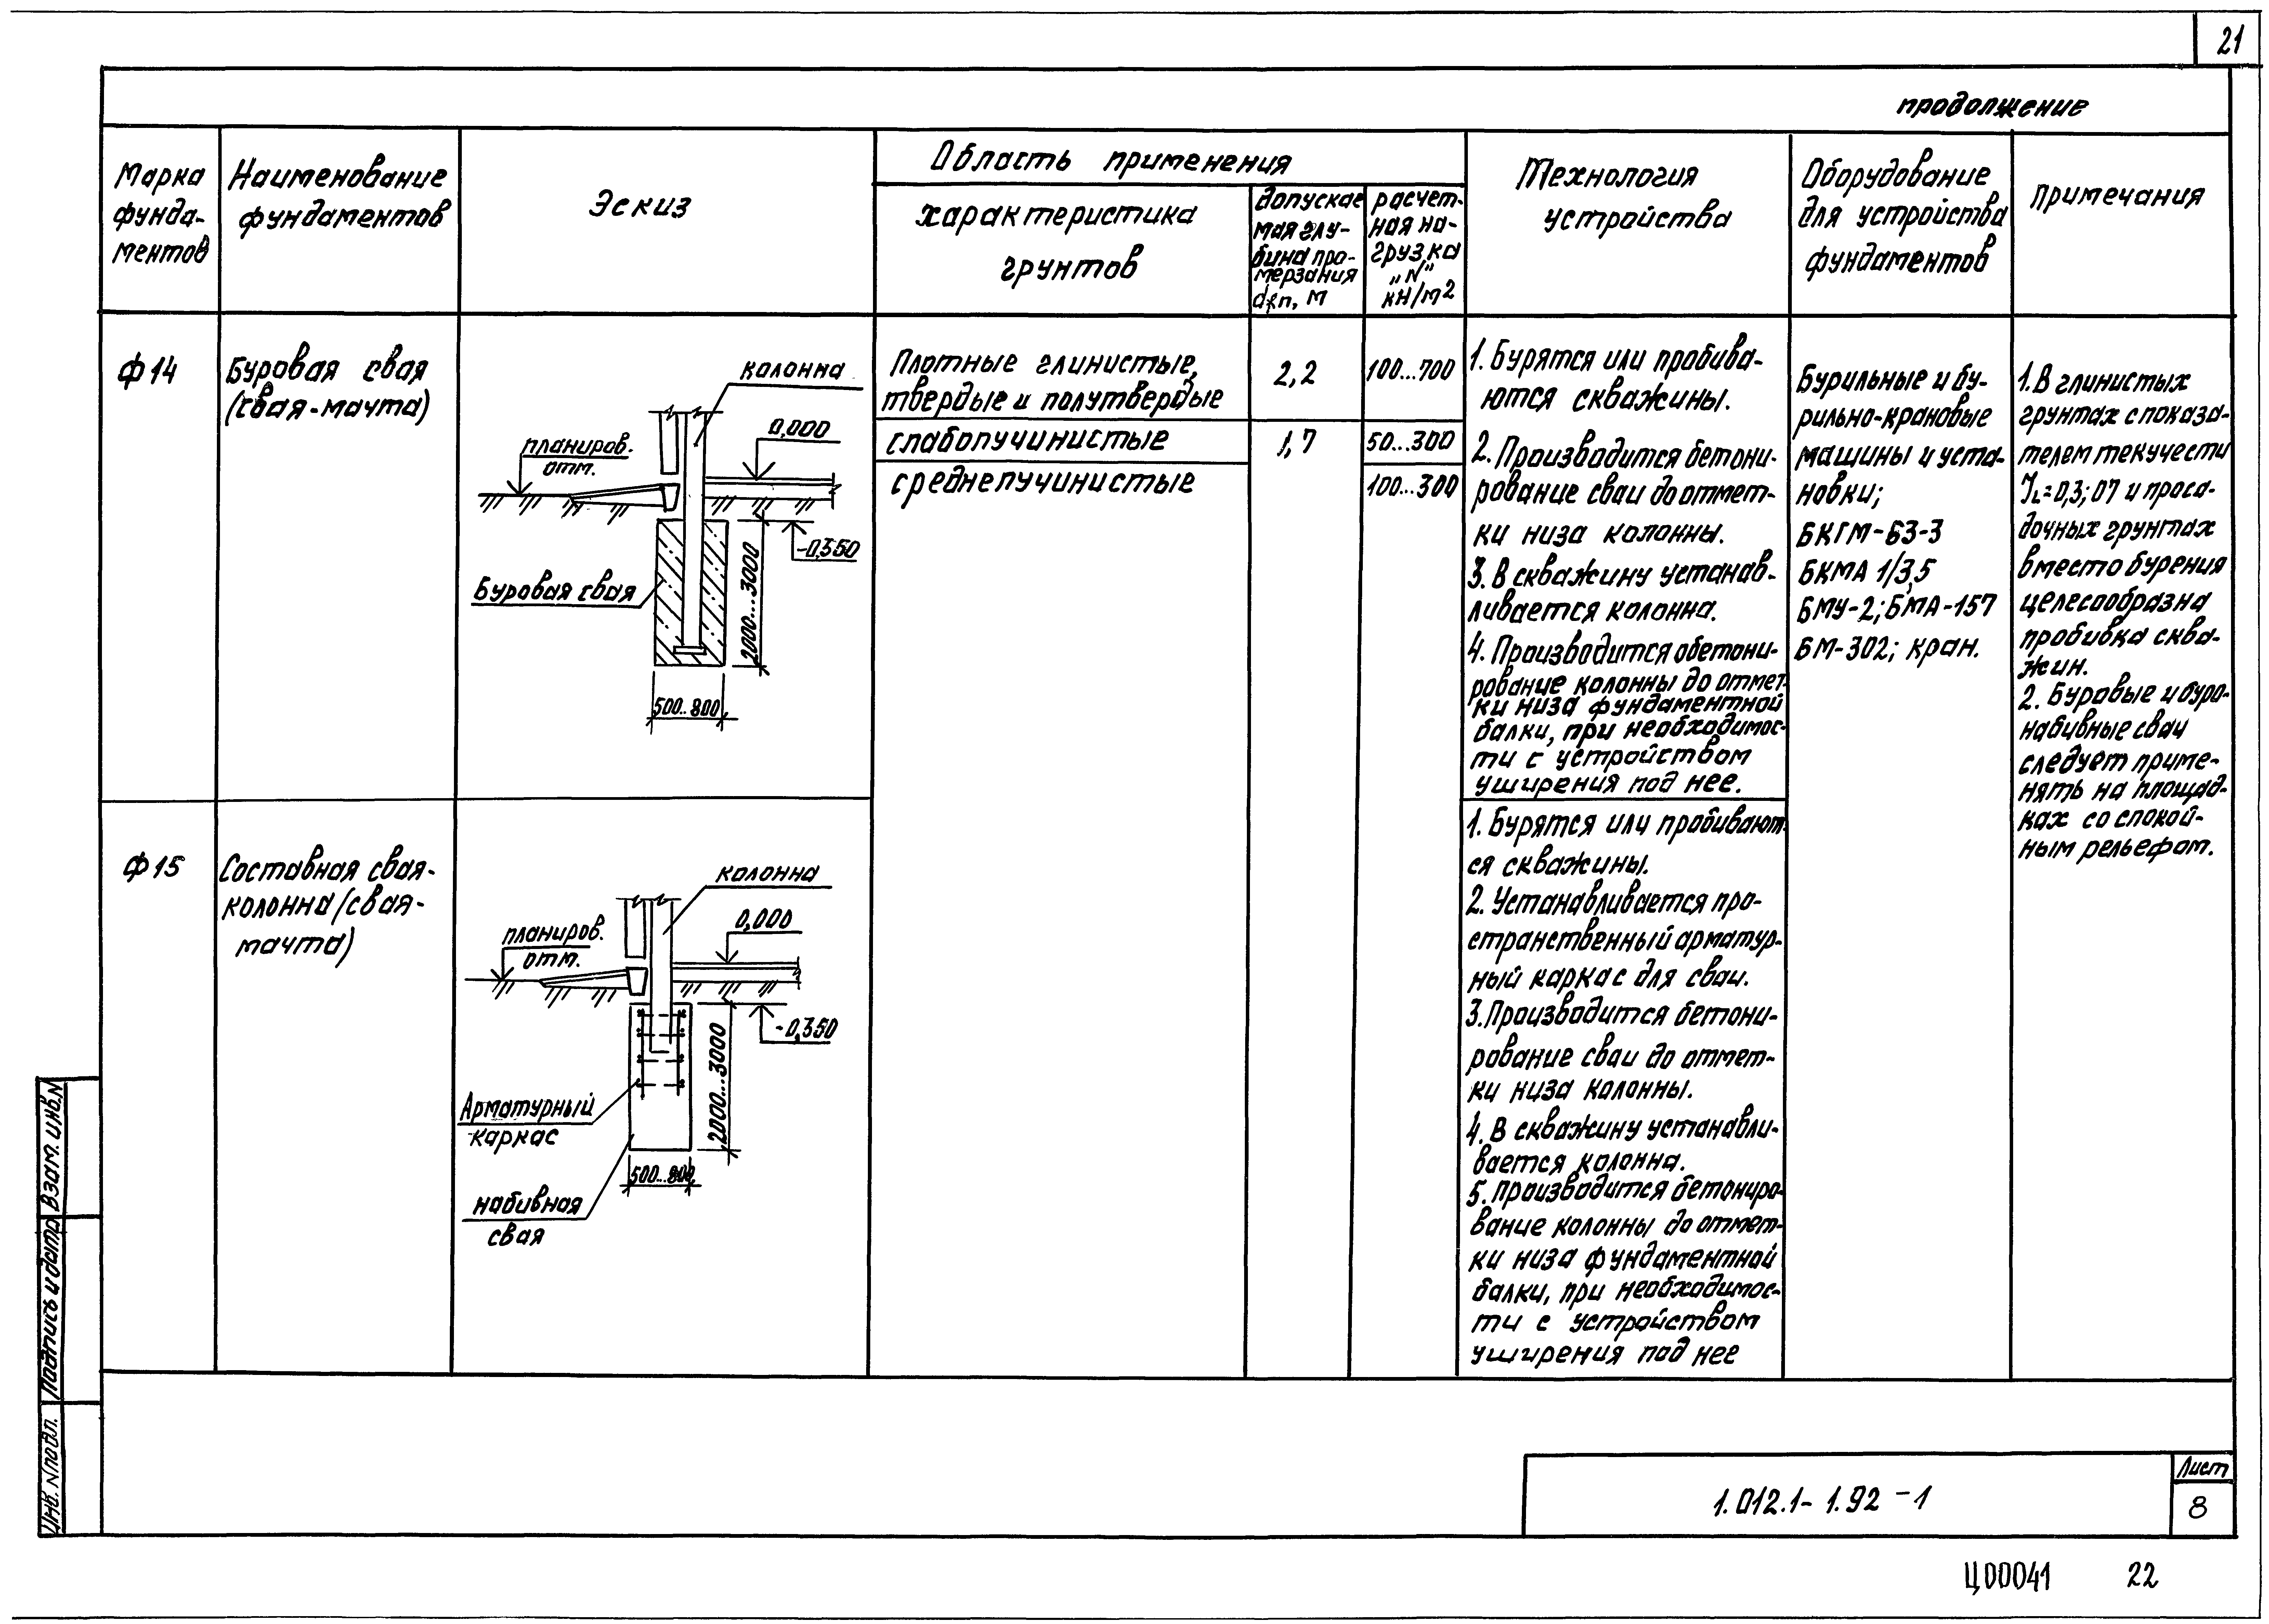 21
продолжение
Марка
фунда-
ментов
Наименование
фундаментов
Эскиз
Область применения
характеристика
грунтов
допускае
мая глу-
бина про-
мерзания
dfn, м
расчет-
ная на-
грузка
„N"
кН/м2
Технология
устройства
Оборудование
для устройства
фундаментов
Примечания
Ф14
Буровая свая
(свая-мачта)
колонна
0,000
планиров.
отм.
-0,350
Буровая свая
2000...3000
500..800
Плотные глинистые,
твердые и полутвердые
2,2
100...700
слабопучинистые
1,7
50...300
среднепучинистые
100...300
1. Бурятся или пробива-
ются скважины.
2. Производится бетони-
рование сваи до отмет-
ки низа колонны.
3. В скважину устанав-
ливается колонна.
4. Производится обетони-
рование колонны до отмет-
ки низа фундаментной
балки, при необходимос-
ти с устройством
уширения под нее.
Бурильные и бу-
рильно-крановые
машины и уста-
новки;
БКГМ-63-3
БКМА 1/3,5
БМУ-2; БМА-157
БМ-302; кран.
1. В глинистых
грунтах с показа-
телем текучести
JL=0,3; 07 и проса-
дочных грунтах
вместо бурения
целесообразна
пробивка сква-
жин.
2. Буровые и буро-
набивные сваи
следует приме-
нять на площад-
ках со спокой-
ным рельефом.
Ф15
Составная свая-
колонна (свая-
мачта)
колонна
0,000
планиров.
отм.
-0,350
Арматурный
каркас
2000...3000
500...800
набивная
свая
1. Бурятся или пробивают
ся скважины.
2. Устанавливается про-
странственный арматур-
ный каркас для сваи.
3. Производится бетони-
рование сваи до отмет-
ки низа колонны.
4. В скважину устанавли-
вается колонна.
5. Производится бетониро-
вание колонны до отмет-
ки низа фундаментной
балки, при необходимос-
ти с устройством
уширения под нее
Взам. инв.N
Подпись и дата
Инв. N подл.
1.012.1-1.92 -1
Лист
8
Ц00041
22